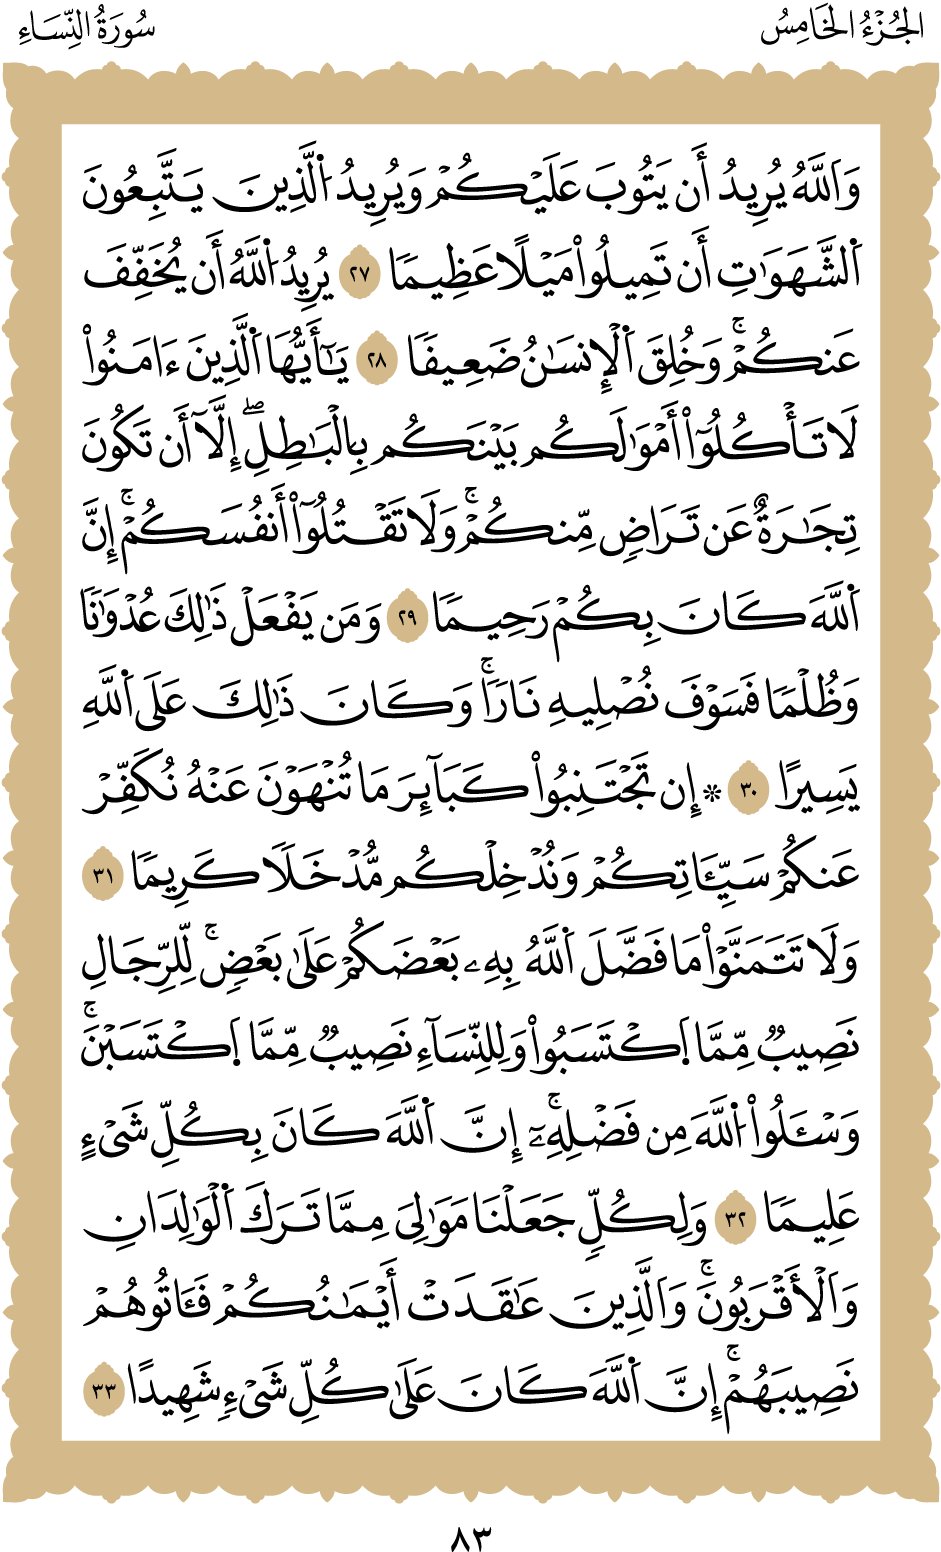 الجُزْءُ الخَامِسُ
سُورَةُ النِّسَاءِ
وَاللَّهُ يُرِيدُ أَن يَتُوبَ عَلَيْكُمْ وَيُرِيدُ الَّذِينَ يَتَّبِعُونَ
ٱلشَّهَوَٰتِ أَن تَمِيلُوا۟ مَيْلًا عَظِيمًا ٢٧ يُرِيدُ ٱللَّهُ أَن يُخَفِّفَ
عَنكُمْ ۚ وَخُلِقَ ٱلْإِنسَٰنُ ضَعِيفًا ٢٨ يَٰٓأَيُّهَا ٱلَّذِينَ ءَامَنُوا۟
لَا تَأْكُلُوٓا۟ أَمْوَٰلَكُم بَيْنَكُم بِٱلْبَٰطِلِ ۖ إِلَّآ أَن تَكُونَ
تِجَٰرَةٌ عَن تَرَاضٍ مِّنكُمْ ۚ وَلَا تَقْتُلُوٓا۟ أَنفُسَكُمْ ۚ إِنَّ
ٱللَّهَ كَانَ بِكُمْ رَحِيمًا ٢٩ وَمَن يَفْعَلْ ذَٰلِكَ عُدْوَٰنًا
وَظُلْمًا فَسَوْفَ نُصْلِيهِ نَارًا ۚ وَكَانَ ذَٰلِكَ عَلَى ٱللَّهِ
يَسِيرًا ٣٠ ۞ إِن تَجْتَنِبُوا۟ كَبَآئِرَ مَا تُنْهَوْنَ عَنْهُ نُكَفِّرْ
عَنكُمْ سَيِّـَٔاتِكُمْ وَنُدْخِلْكُم مُّدْخَلًا كَرِيمًا ٣١
وَلَا تَتَمَنَّوْا۟ مَا فَضَّلَ ٱللَّهُ بِهِۦ بَعْضَكُمْ عَلَىٰ بَعْضٍ ۚ لِّلرِّجَالِ
نَصِيبٌ مِّمَّا ٱكْتَسَبُوا۟ وَلِلنِّسَآءِ نَصِيبٌ مِّمَّا ٱكْتَسَبْنَ ۚ
وَسْـَٔلُوا۟ ٱللَّهَ مِن فَضْلِهِۦٓ ۚ إِنَّ ٱللَّهَ كَانَ بِكُلِّ شَىْءٍ
عَلِيمًا ٣٢ وَلِكُلٍّ جَعَلْنَا مَوَٰلِىَ مِمَّا تَرَكَ ٱلْوَٰلِدَانِ
وَٱلْأَقْرَبُونَ ۚ وَٱلَّذِينَ عَٰقَدَتْ أَيْمَٰنُكُمْ فَـَٔاتُوهُمْ
نَصِيبَهُمْ ۚ إِنَّ ٱللَّهَ كَانَ عَلَىٰ كُلِّ شَىْءٍ شَهِيدًا ٣٣
٨٣